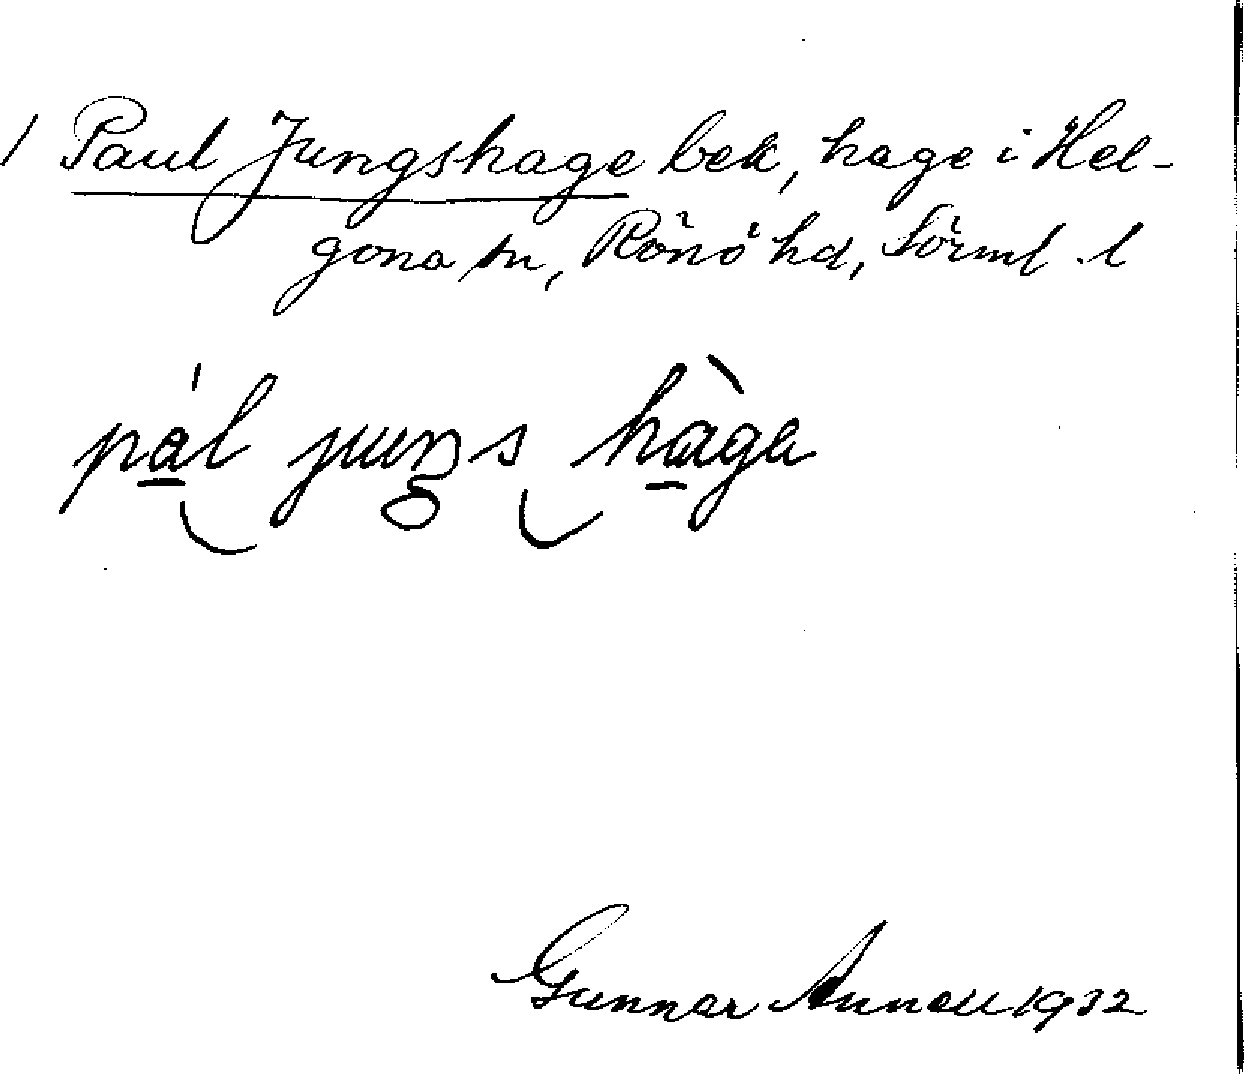 / Paul Jungshage bek, hage i Hel-
gona sn, Rönö hd, Sörml. l
pá̱l juŋs hà̱ga
Gunnar Annell 1932